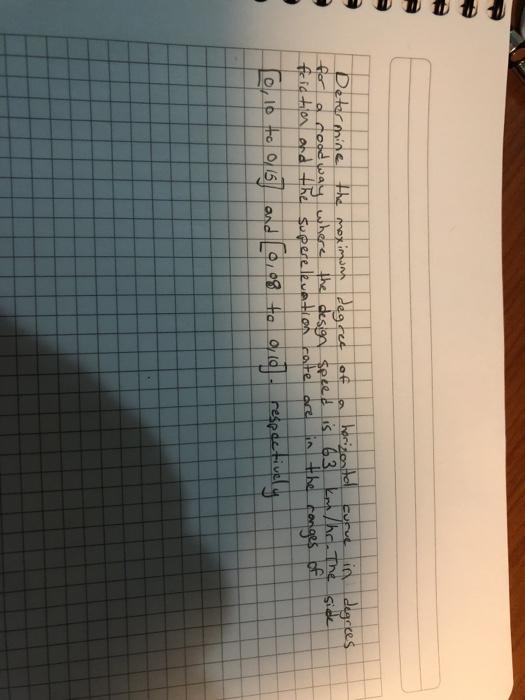 Determine the maximum degree of a horizontal curve in degrees
for a roadway where the design speed is 63 km/hr. The side
friction and the superelevation rate are in the ranges of
[0,10 to 0,15] and [0,08 to 0,10]. respectively